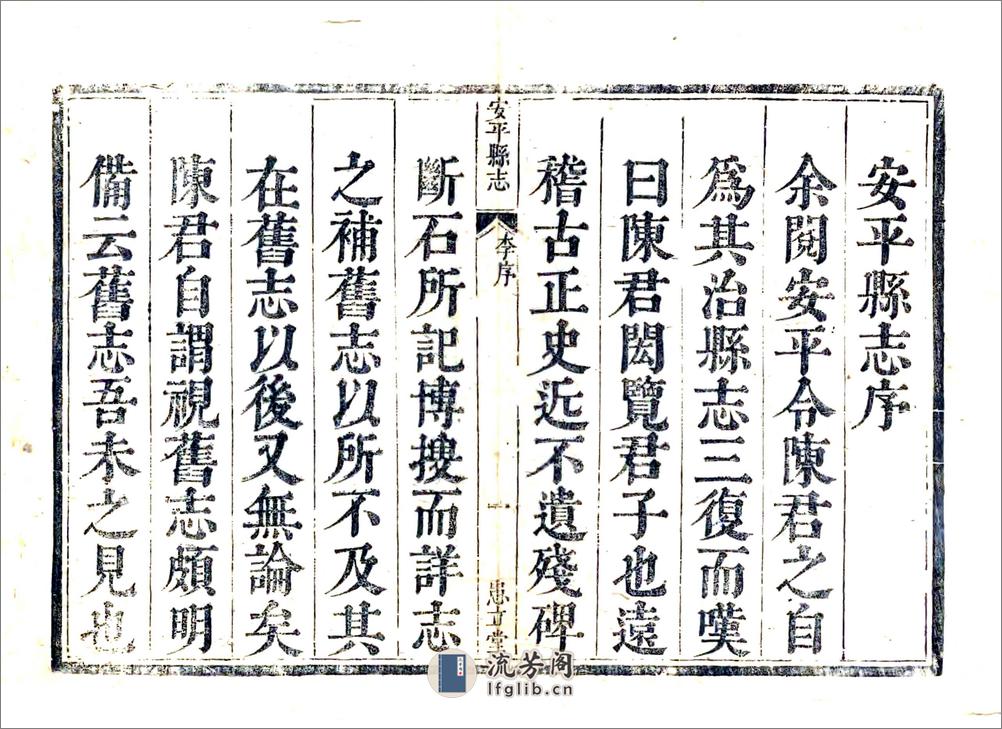 安平縣志序
余閱安平令陳君之自
爲其治縣志三復而嘆
曰陳君閎覽君子也遠
稽古正史近不遺殘碑
安平縣志
李序
一
患立堂
斷石所記博搜而詳志
之補舊志以所不及其
在舊志以後又無論矣
陳君自謂視舊志頗明
備云舊志吾未之見也
流芳阁
lfglib.cn